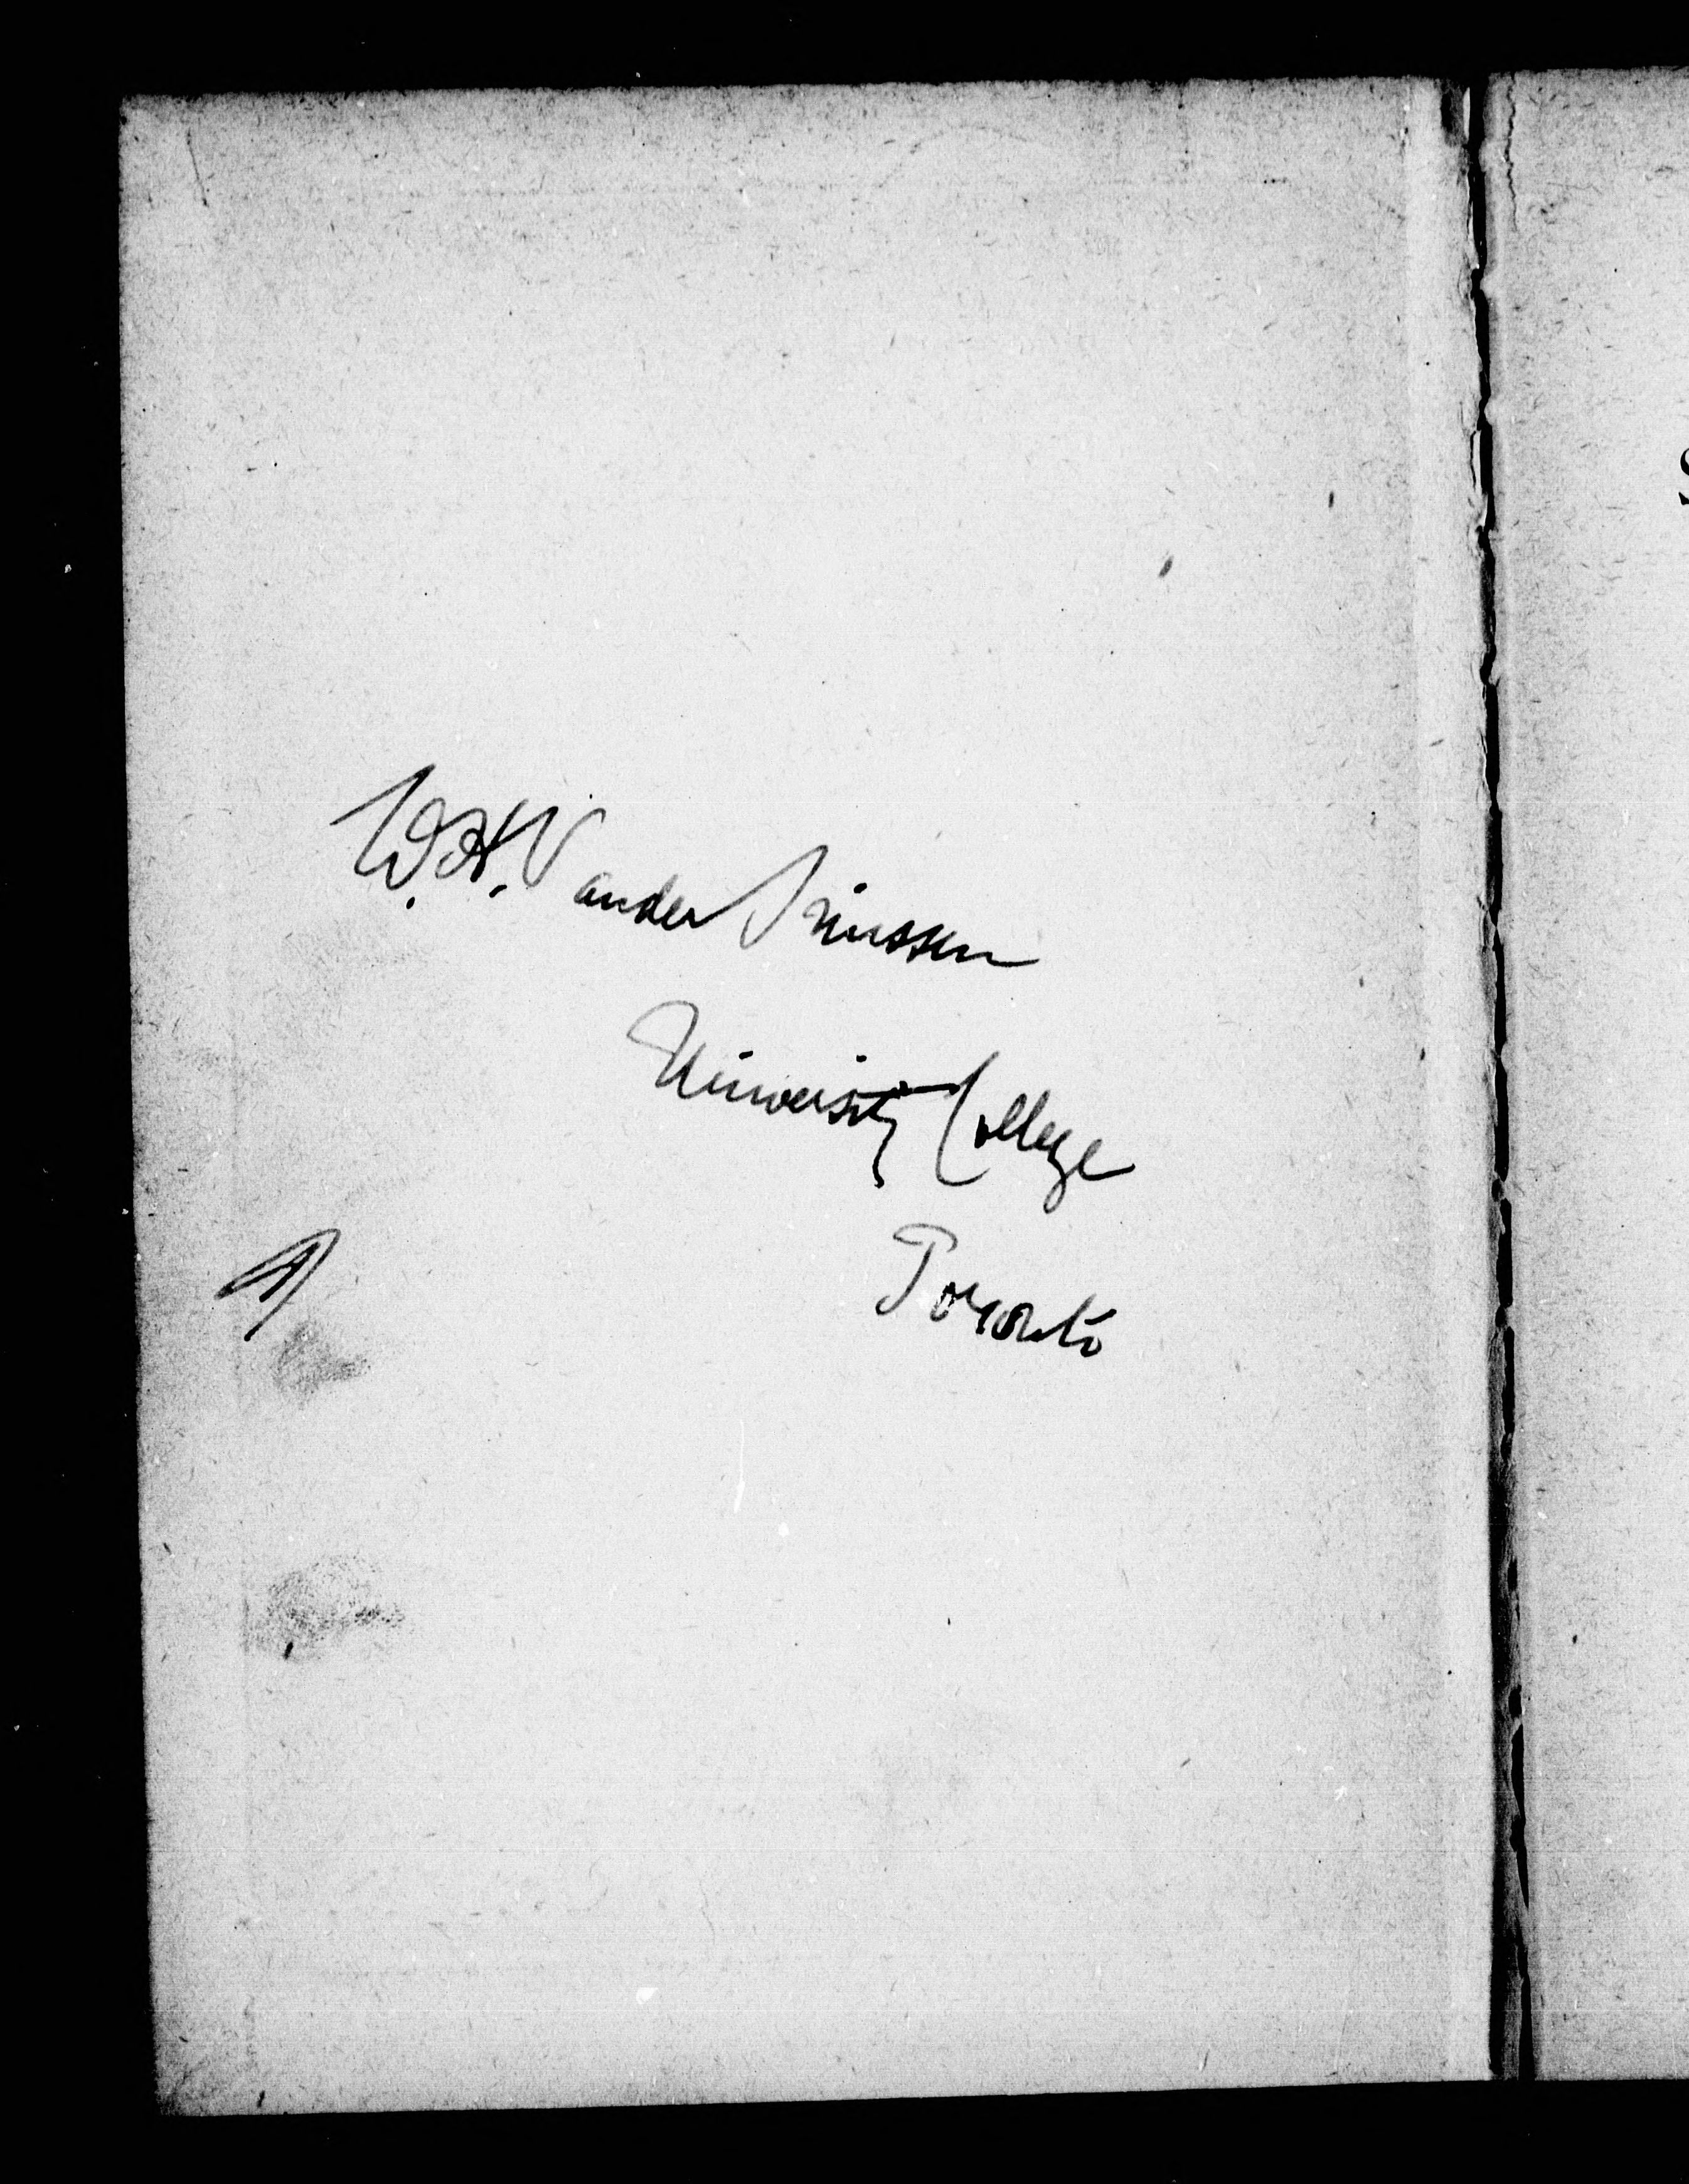 W.H. Vander Smissen
University College
Toronto
S